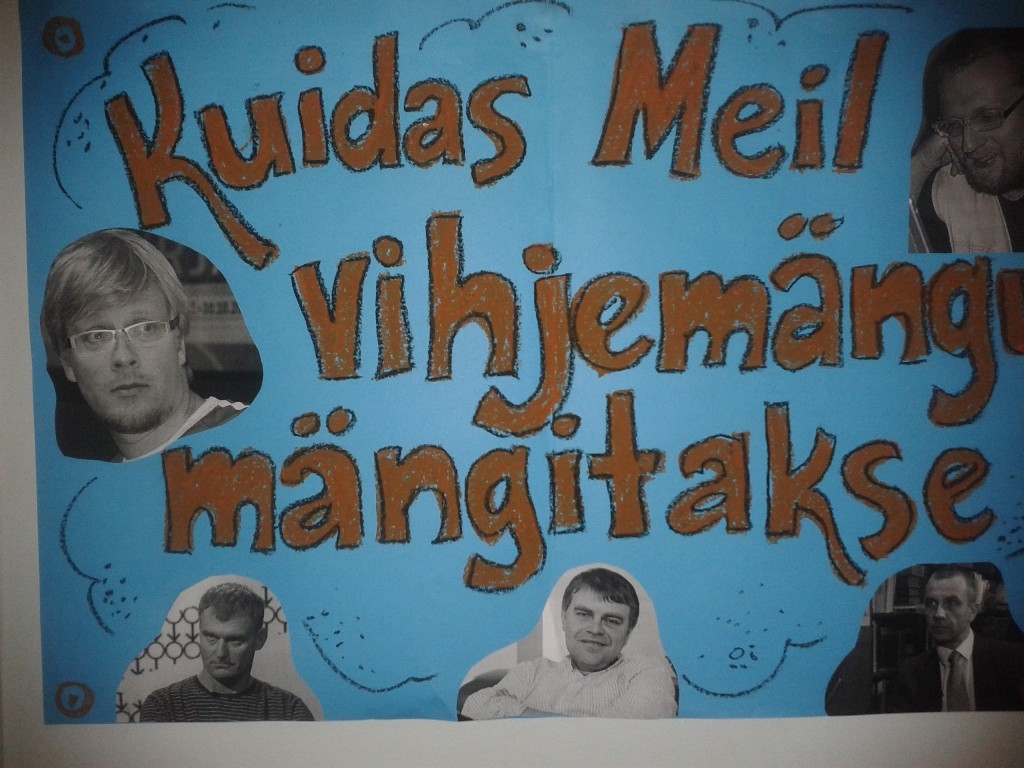 Kuidas Meil
vihjemängu
mängitakse